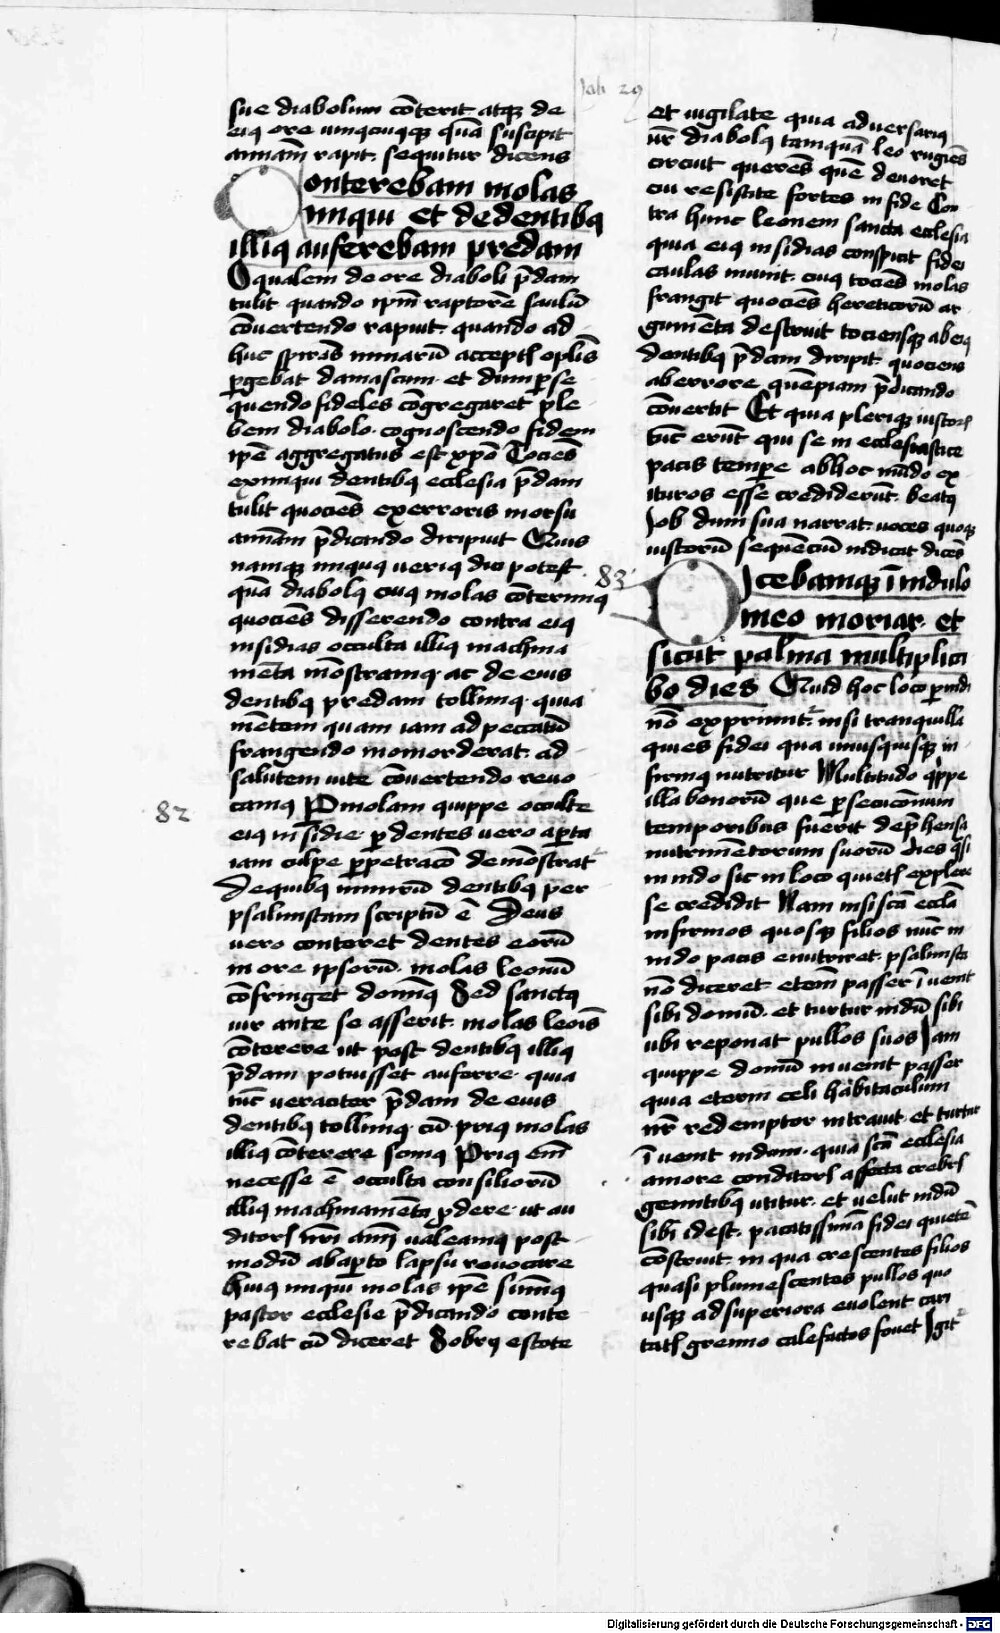 Job 29
sue diabolum cōterit atqꝫ de
eiꝰ ore unuquēqꝫ quā suscipit
animam rapit. sequitur dicens
Conterebam molas
iniqui et de dentibꝰ
illiꝰ auferebam predam
O qualem de ore diaboli p̄dam
tulit quando ip̄m raptorē saulū
cōuertendo rapuit. quando ad
huc spirās minarū acceptis ep̄lis
ꝑgebat damascum. et dum ꝑse
quendo fideles cōgregaret ple
bem diabolo. cognoscendo fidem
ip̄e aggregatus est xp̄o Tociēs
ex iniqui dentibꝰ ecclesia p̄dam
tulit quociēs ex erroris morsu
animam p̄dicando diripuit Quis
namqꝫ iniquus veriꝰ dici potest
quā diabolꝰ cuiꝰ molas cōterimꝰ
quociēs disserendo contra eiꝰ
insidias occulta illiꝰ machina
mēta mōstramꝰ. ac de eius
dentibꝰ predam tollimꝰ. quia
mētem quam iam ad peccatū
frangendo momorderat. ad
salutem uite cōuertendo reuo
camꝰ Per molam quippe occulte
82
eiꝰ insidie. ꝑ dentes uero aꝑta
iam culpe ꝑpetracō demōstrat᷑
De quibꝰ nimirū dentibꝰ per
psalmistam scriptū ē Deus
uero conteret dentes eorū
in ore ipsorū. molas leonū
cōfringet dominꝰ Sed sanctꝰ
uir ante se asserit. molas leōis
cōterere ut post dentibꝰ illiꝰ
p̄dam potuisset auferre. quia
tūc ueraciter p̄dam de eius
dentibꝰ tollimꝰ. cū priꝰ molas
illiꝰ cōterere scimꝰ Priꝰ em̄
necesse ē occulta consiliorū
illiꝰ machinamēta ꝓdere. ut au
ditoris nr̄i aīm ualeamꝰ post
modū ab aꝑto lapsu reuocare
Huiꝰ iniqui molas ip̄e summꝰ
pastor ecclesie p̄dicando conte
rebat cū diceret Sobrii estote
et uigilate quia aduersariꝰ
ur̄ diabolꝰ tamquā leo rugiēs
circuit querēs quē deuoret
cui resistite fortes in fide Con
tra hunc leonem sancta ecclesia
quia eiꝰ insidias conspicit fidei
caulas munit. cuiꝰ tociēs molas
frangit quociēs hereticorū ar
gumēta destruit tociensqꝫ ab eiꝰ
dentibꝰ p̄dam diripit. quociens
ab errore quēpiam p̄dicando
cōuertit Et quia pleriqꝫ iustoꝝ
tūc erūt qui se in ecclesiastice
pacis tempore ab hoc mūdo ex
ituros esse crediderūt. beatꝰ
Job dum sua narrat. uoces quoqꝫ
iustorū sequēcium indicat dicēs
83
Dicebamqꝫ ī nidulo
meo moriar. et
sicut palma multiplica
bo dies Quid hoc loco ꝑ nidū
nō exprimit᷑. nisi tranquilla
quies fidei qua unusquisqꝫ in
firmꝰ nutritur Multitudo qͥppe
illa bonorū que ꝑsecucōnum
temporibus fuerit dep̄hensa
nutrimētorum suorū dies qͣsi
in nido sic in loco quietis explere
se credidit Nam nisi scā eccl̄a
infirmos quosqꝫ filios nūc in
nido pacis enutriret. psalmista
nō diceret. eten̄ passer īuenit
sibi domū. et turtur nidū sibi
ubi reponat pullos suos Jam
quippe domū inuenit passer
quia eterni celi habitaculum
nr̄ redemptor intrauit. et turtur
īuenit nidum. quia scā ecclesia
amore conditoris affecta crebris
gemitibꝰ utitur. et uelut nidū
sibi idest. pacatissimā fidei quietē
cōstruit. in qua crescentes filios
quasi plumescentes pullos quo
usqꝫ ad superiora euolent cari
tatis gremio calefactos fouet Igit᷑
Digitalisierung gefördert durch die Deutsche Forschungsgemeinschaft - DFG